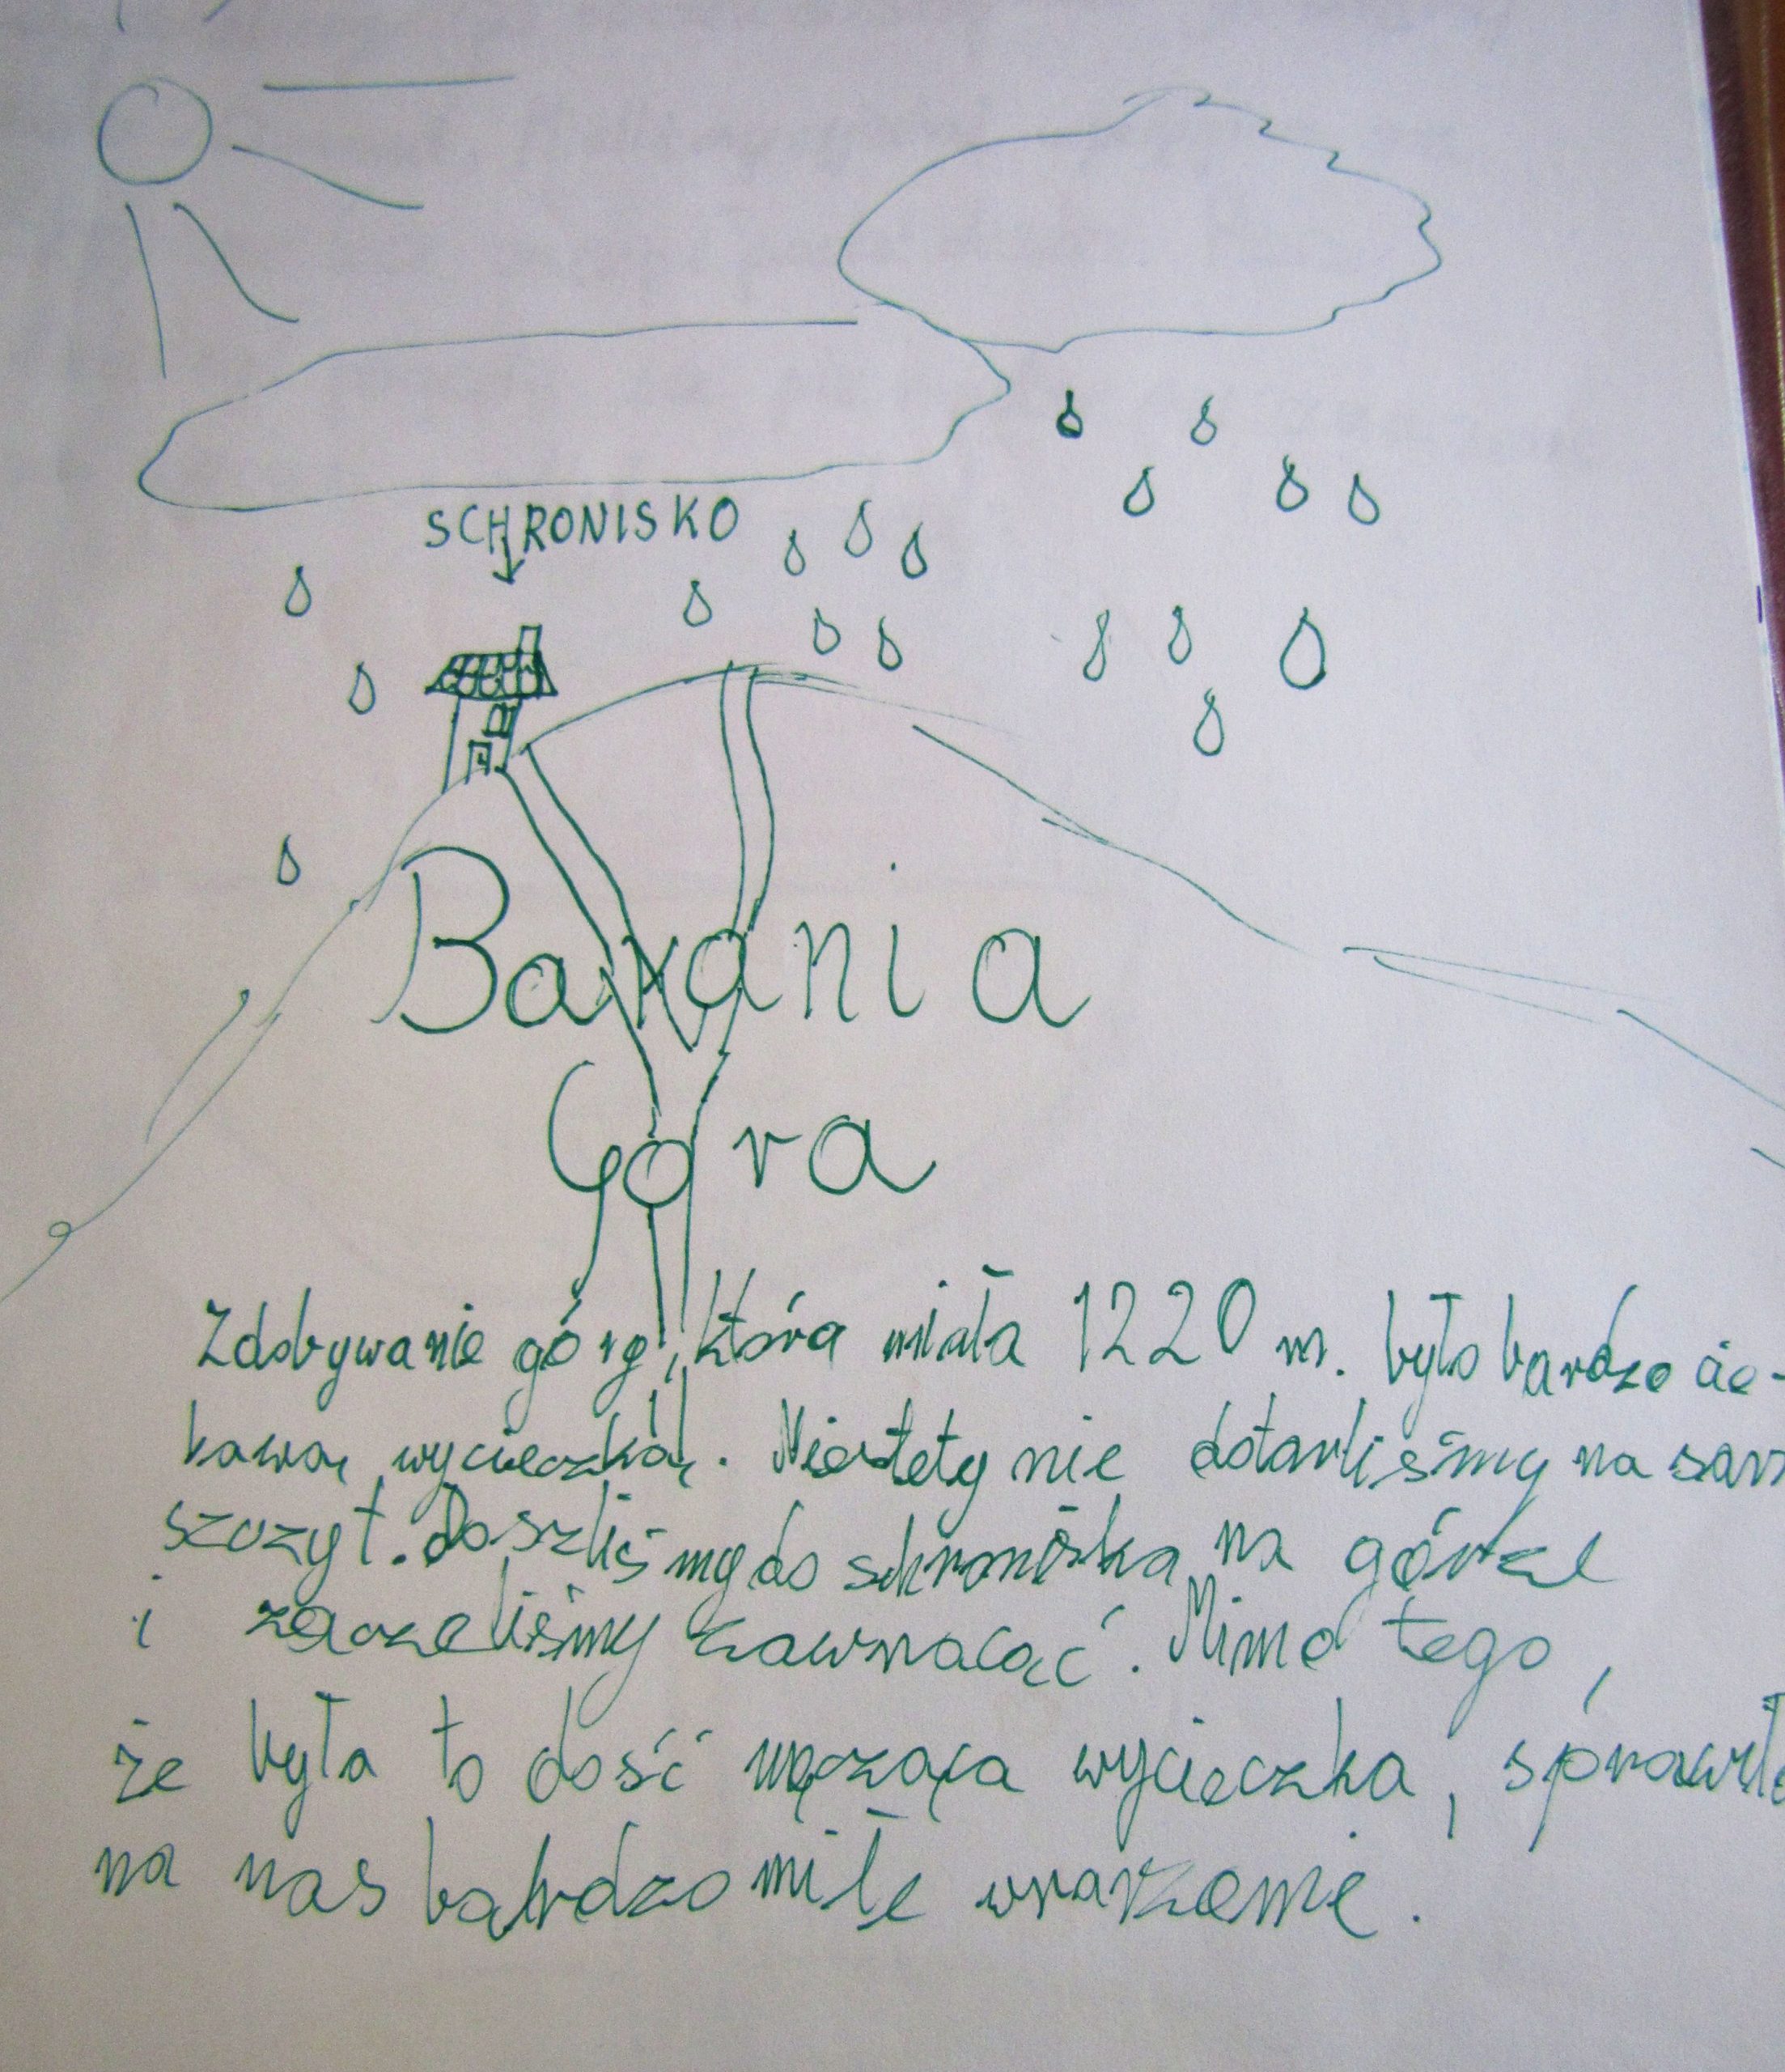 SCHRONISKO
Barania
Góra
Zdobywanie góry, która miała 1220 m. było bardzo cie-
kawą wycieczką. Niestety nie dotarliśmy na sam
szczyt. Doszliśmy do schroniska na górze
i zaczeliśmy zawracać. Mimo tego,
że była to dość męcząca wycieczka, sprawiła
na nas bardzo miłe wrażenie.